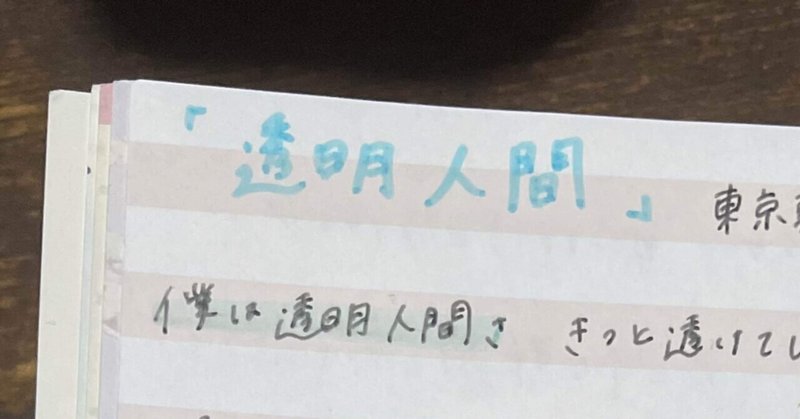 「透明人間」 東京
僕は透明人間さ きっと透けて